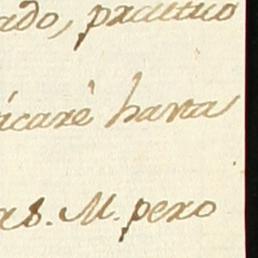 ado, practico
icaré hasta
as. M. pero